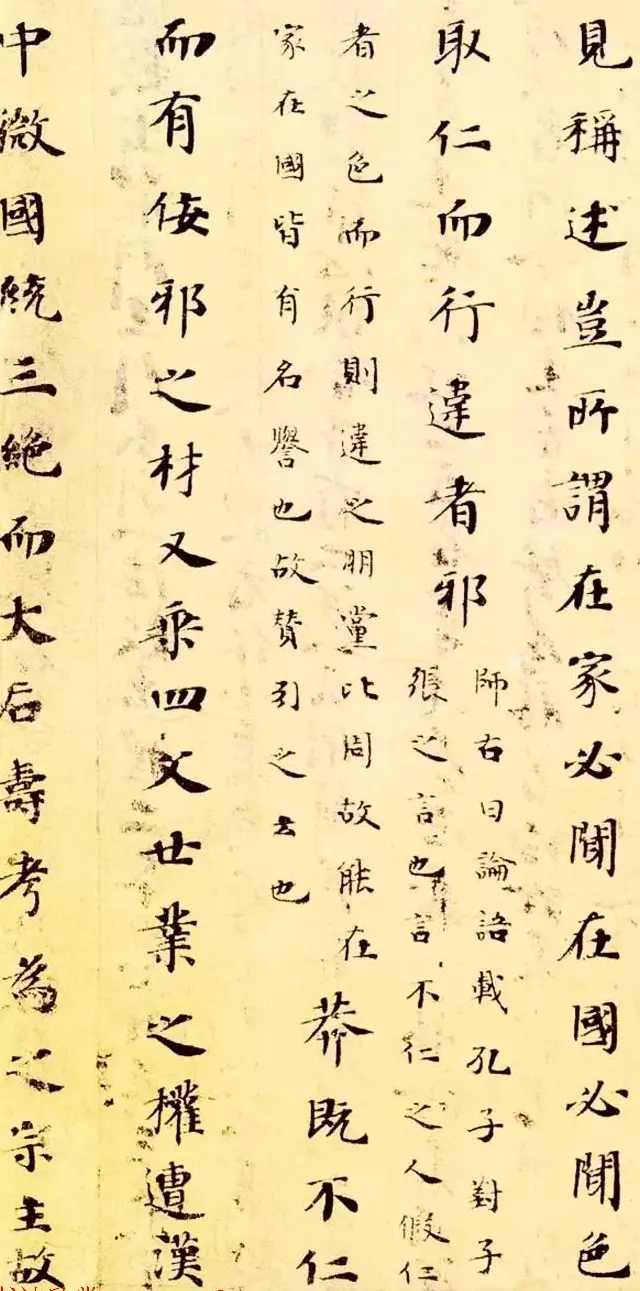 見稱述豈所謂在家必聞在國必聞色
取仁而行違者邪
師古曰論語載孔子對子
張之言也言不仁之人假仁
者之色而行則違之朋黨比周故能在
家在國皆有名譽也故贊引之云也
莽既不仁
而有佞邪之材又乘四父世業之權遭漢
中微國統三絕而大后壽考為之宗主故